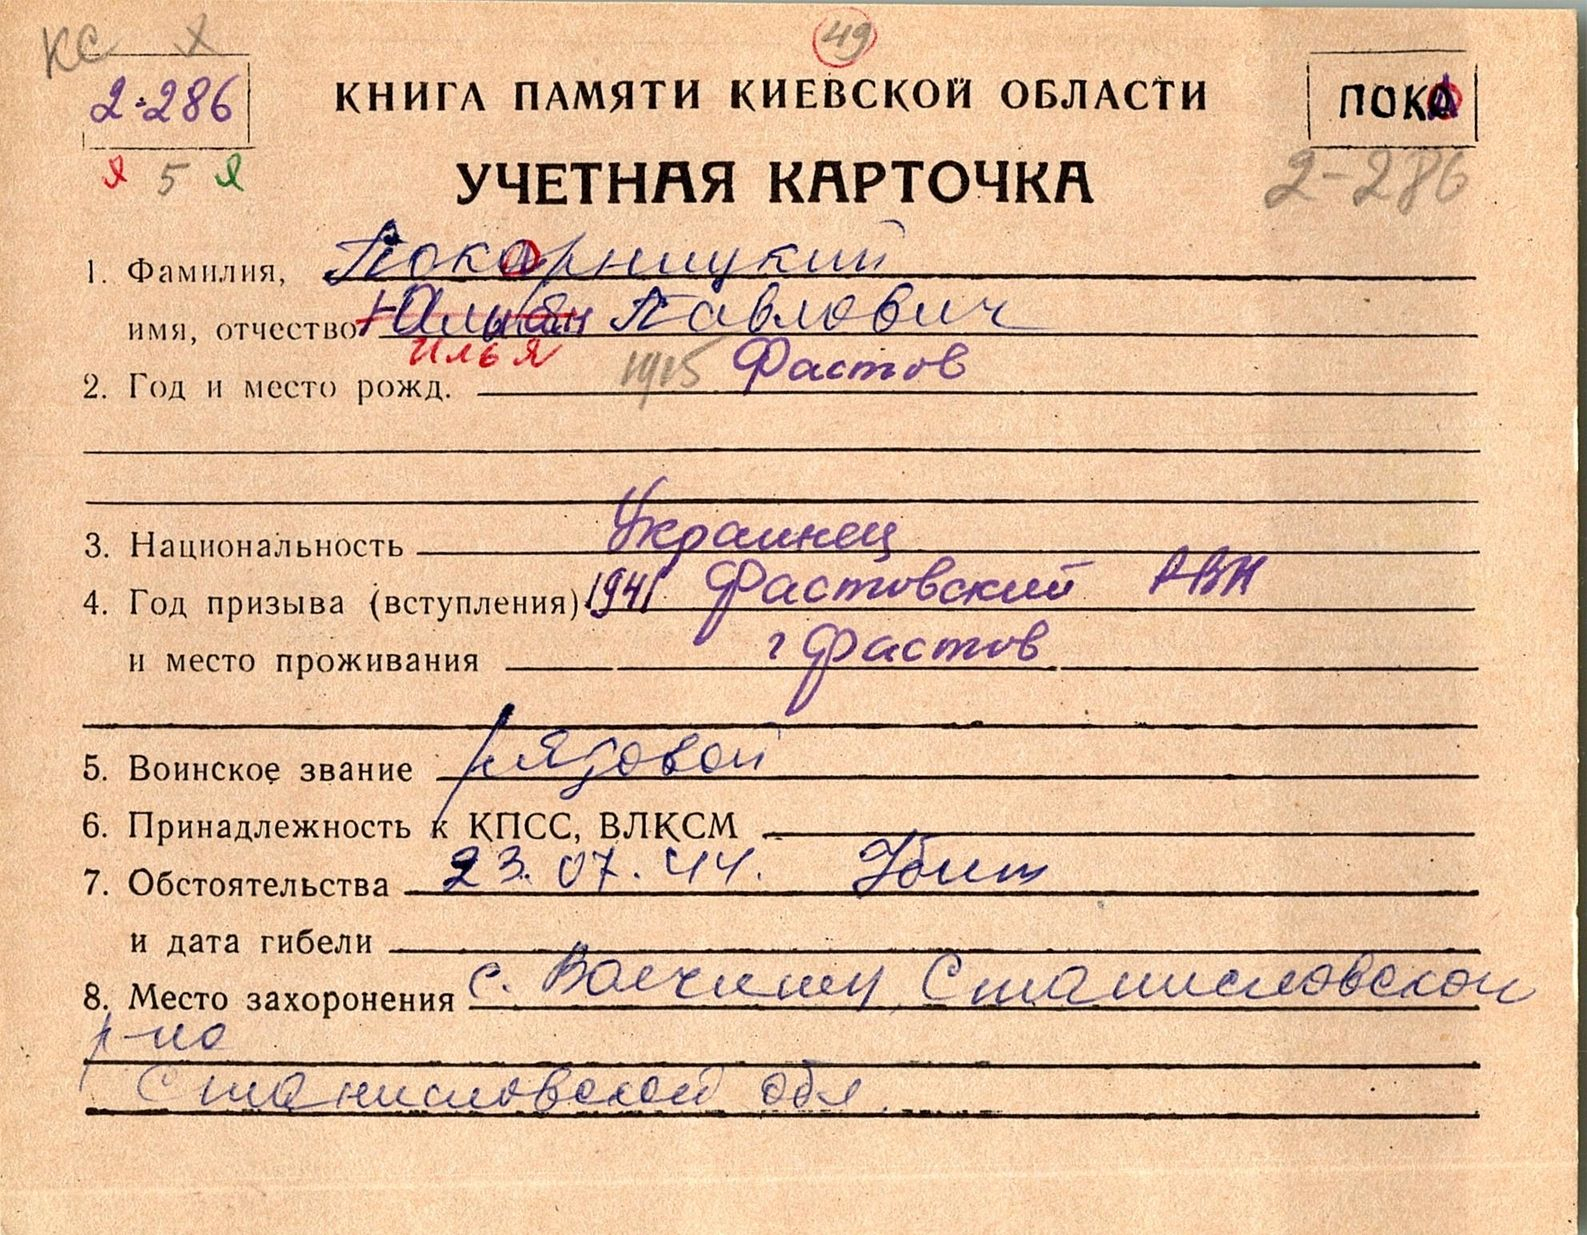 КС
49
2-286
КНИГА ПАМЯТИ КИЕВСКОЙ ОБЛАСТИ
ПОКА
Я 5 Я
УЧЕТНАЯ КАРТОЧКА
2-286
1. Фамилия, Покарницкий
имя, отчество Павлович
Илья
2. Год и место рожд. 1915 Фастов
3. Национальность Украинец
4. Год призыва (вступления) 1941 Фастовский РВК
и место проживания г Фастов
5. Воинское звание рядовой
6. Принадлежность к КПСС, ВЛКСМ
7. Обстоятельства 23.07.44. Убит
и дата гибели
8. Место захоронения с. Станисловской
р-на
Станисловской обл.